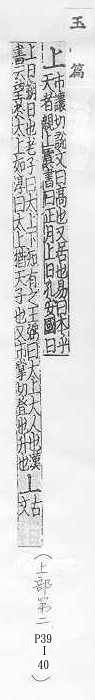 玉篇
上 市讓切說文曰高也又居也易曰本乎
天者親上虞書曰正月上日孔安國曰
上日朔日也老子曰大上下知有之王弼曰大上大人也漢
書云望于太上如淳曰太上猶天子也又市掌切登也升也
上 古
文
(上部第二 P39
I
40)